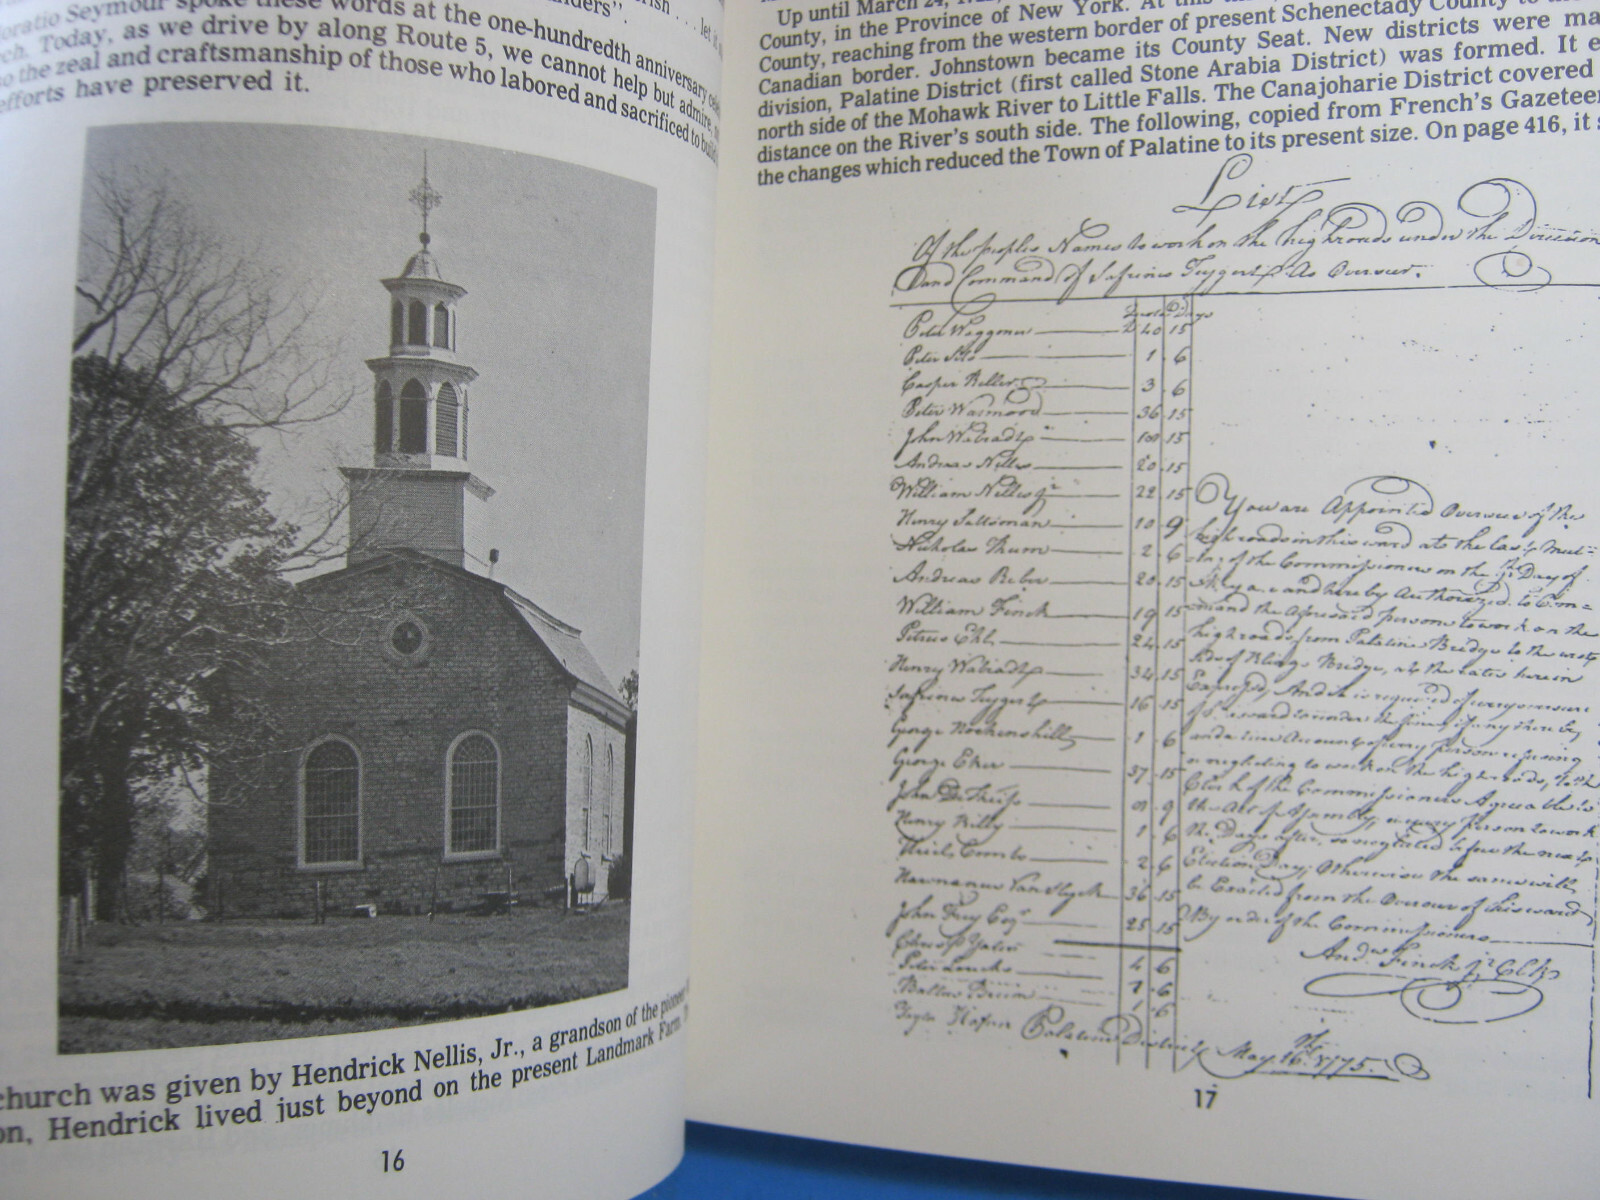 oratio Seymour spoke these words at the one-hundredth anniversary
rch. Today, as we drive by along Route 5, we cannot help but admire,
to the zeal and craftsmanship of those who labored and sacrificed to build
efforts have preserved it.
church was given by Hendrick Nellis, Jr., a grandson of the pioneer
on, Hendrick lived just beyond on the present Landmark Farm.
16
Up until March 24,
County, in the Province of New York. At this
County, reaching from the western border of present Schenectady County to
Canadian border. Johnstown became its County Seat. New districts were ma
division, Palatine District (first called Stone Arabia District) was formed. It e
north side of the Mohawk River to Little Falls. The Canajoharie District covered
distance on the River's south side. The following, copied from French's Gazeteer
the changes which reduced the Town of Palatine to its present size. On page 416, it s
List
Of the peoples Names to work on the high roads under the Direction
and Command of Safrines Tyggert As Overseer.
Days
Peter Waggoner 40 15
Peter 1 6
Casper Keller 3 6
Peter Wasmood 36 15
John 100 15
Andreas Nelles 20 15
William Nelles Jr 22 15
Henry Saltsman 10 9
Nicholas Thum 2 6
Andreas Reber 20 15
William Finck 19 15
Petrus Ehl 24 15
Henry 34 15
Safrines Tyggert 16 15
George 1 6
George Eker 37 15
John 9
Henry 1 6
Combs 2 6
Van Slyck 36 15
John Frey Esqr 25 15
Yates
Peter Loucks 4 6
6
1 6
You are Appointed Overseer of the
high roads in this ward at the last Meet=
ing of the Commissioners on the Day of
and hereby Authorized to Com=
mand the aforesaid persons to work on the
high roads from Palatine Bridge to the west
side of Klings Bridge, at the rates herein
Expressed, And is required
ward to render the fines if any there be,
and a true Account of every person refusing
or neglecting to work on the high roads, to the
Clerk of the Commissioners Agreeable to
the Act of Assembly, every person to work
the Days after, so neglected before the next
Election Day, Otherwise the same will
be Exacted from the Overseer of this ward
By order of the Commissioners
Andw Finck Jr Clk
Palatine District May 16th 1775.
17